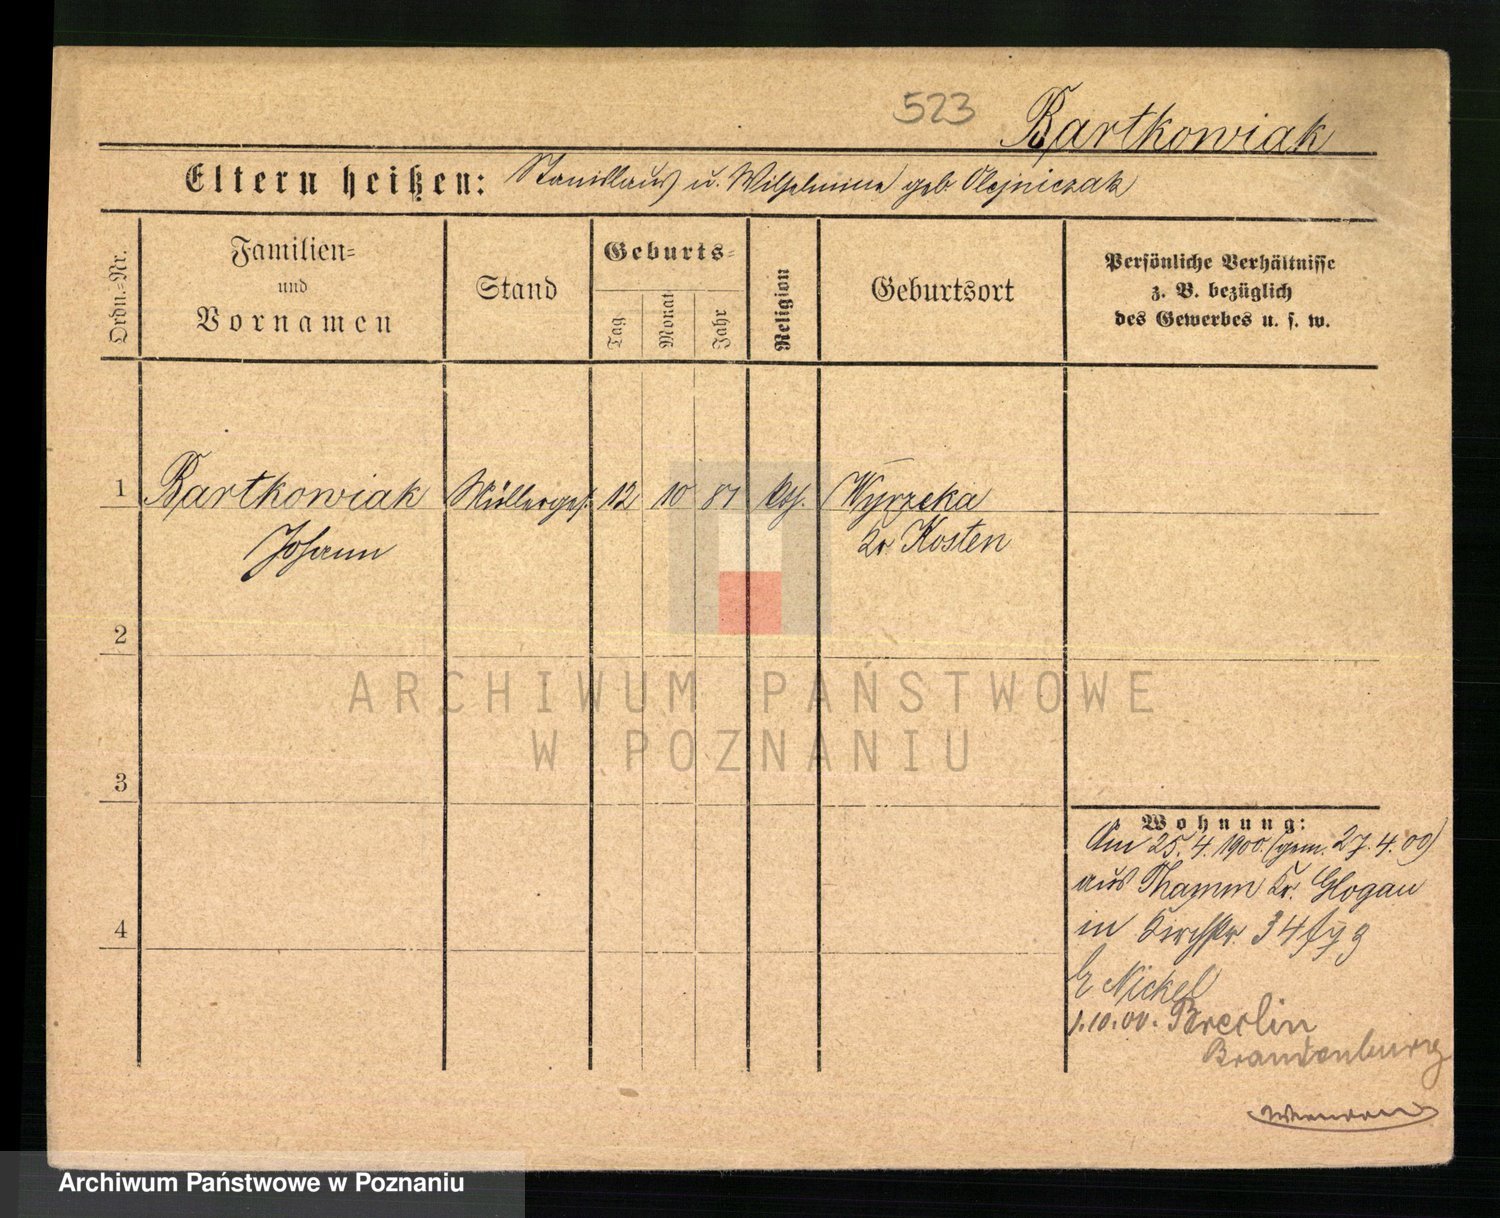 523
Bartkowiak
Eltern heißen: Stanislaus u. Wilhelmine geb Olejniczak
Ordn.-Nr.
Familien-
und
Vornamen
Stand
Geburts-
Tag
Monat
Jahr
Religion
Geburtsort
Persönliche Verhältnisse
z. B. bezüglich
des Gewerbes u. s. w.
1 Bartkowiak Müllerges. 12 10 81 kth. Wyrzeka
Johann Kr Kosten
2
ARCHIWUM PAŃSTWOWE
W POZNANIU
3
Wohnung:
Am 25.4.1900. (gem. 27.4.00)
aus Thamm Kr. Glogau
in Kirchstr. 34
b Nickel
1.10.00.
Brandenburg
4
Archiwum Państwowe w Poznaniu